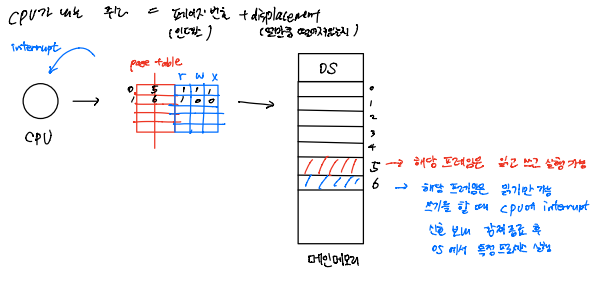 CPU가 내는 주소 = 페이지 번호 + displacement
(인덱스) (얼만큼 떨어져있는지)
interrupt
page table
r w x
0 5 1 1 1
1 6 1 0 0
CPU
OS
0
1
2
3
4
5 → 해당 프레임은 읽고 쓰고 실행 가능
6 → 해당 프레임은 읽기만 가능
쓰기를 할 때 CPU에 interrupt
신호 보내 강제종료 후
OS에서 특정 실행
메인메모리